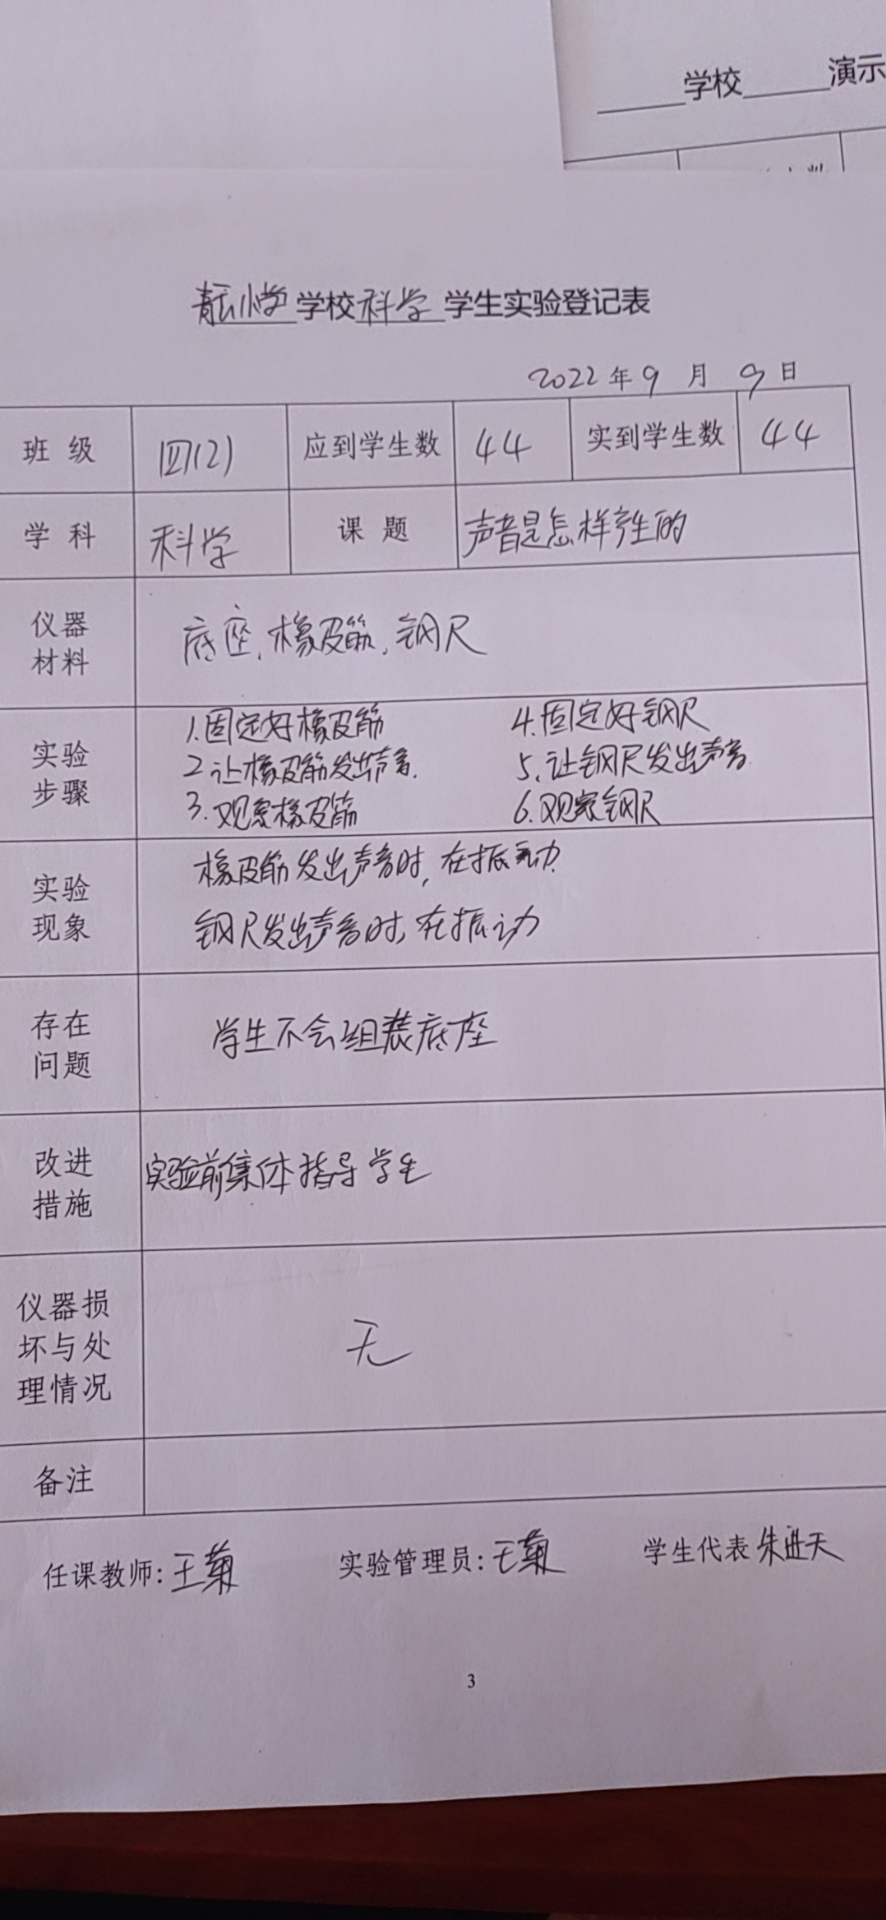 学校 演示
青云小学学校科学学生实验登记表
2022年9月9日
班级 四(2) 应到学生数 44 实到学生数 44
学科 科学 课题 声音是怎样产生的
仪器
材料
底座,橡皮筋,钢尺
实验
步骤
1.固定好橡皮筋 4.固定好钢尺
2.让橡皮筋发出声音. 5.让钢尺发出声音
3.观察橡皮筋 6.观察钢尺
实验
现象
橡皮筋发出声音时,在振动.
钢尺发出声音时,在振动
存在
问题
学生不会组装底座
改进
措施
实验前集体指导学生
仪器损
坏与处
理情况
无
备注
任课教师:王菊 实验管理员:王菊 学生代表朱进天
3